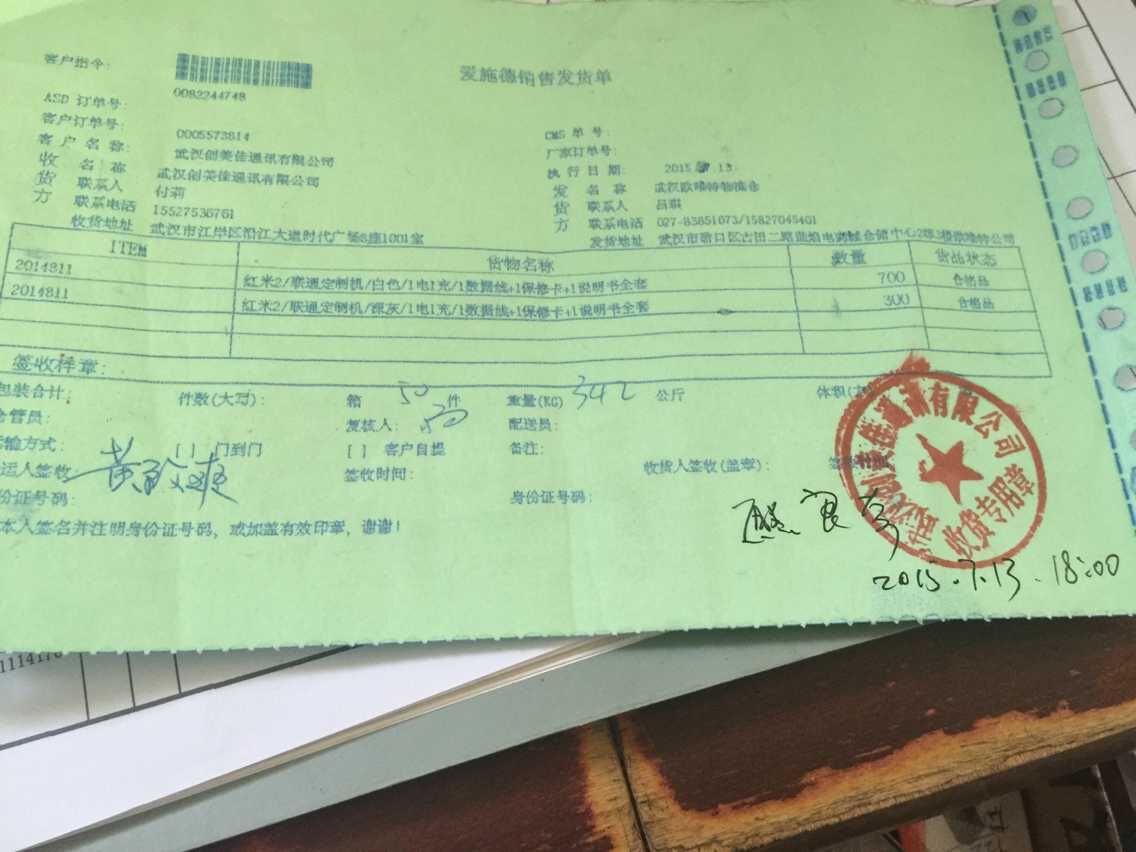 爱施德销售发货单
客户指令:
ASD 订单号: 0082244748
客户订单号:
0005573814 CMS 单 号:
客 户 名 称: 武汉创美佳通讯有限公司 厂家订单号:
收货方 名 称 武汉创美佳通讯有限公司 执 行 日 期: 2015 13
联系人 付莉 发货方 名 称 武汉欧唯特物流仓
联系电话 15527536761 联系人
收货地址 武汉市江岸区沿江大道时代广场B座1001室 联系电话 027-83851073/15827045401
发货地址 武汉市硚口区古田二路 电商城仓储中心2
ITEM 货物名称 数量 货品状态
2014811 红米2/联通定制机/白色/1电1充/1数据线+1保修卡+1说明书全套 700 合格品
2014811 红米2/联通定制机/深灰/1电1充/1数据线+1保修卡+1说明书全套 300 合格品
签收样章:
包装合计: 件数(大写): 箱 50 件 重量(KG) 342 公斤 体积(
仓管员: 复核人: 配送员:
运输方式: [ ] 门到门 [ ] 客户自提 备注:
运人签收 签收时间: 收货人签收(盖章):
份证号码: 身份证号码:
本人签名并注明身份证号码，或加盖有效印章，谢谢!
创美佳通讯有限公司
收货专用章
2015.7.13. 18:00
1114178